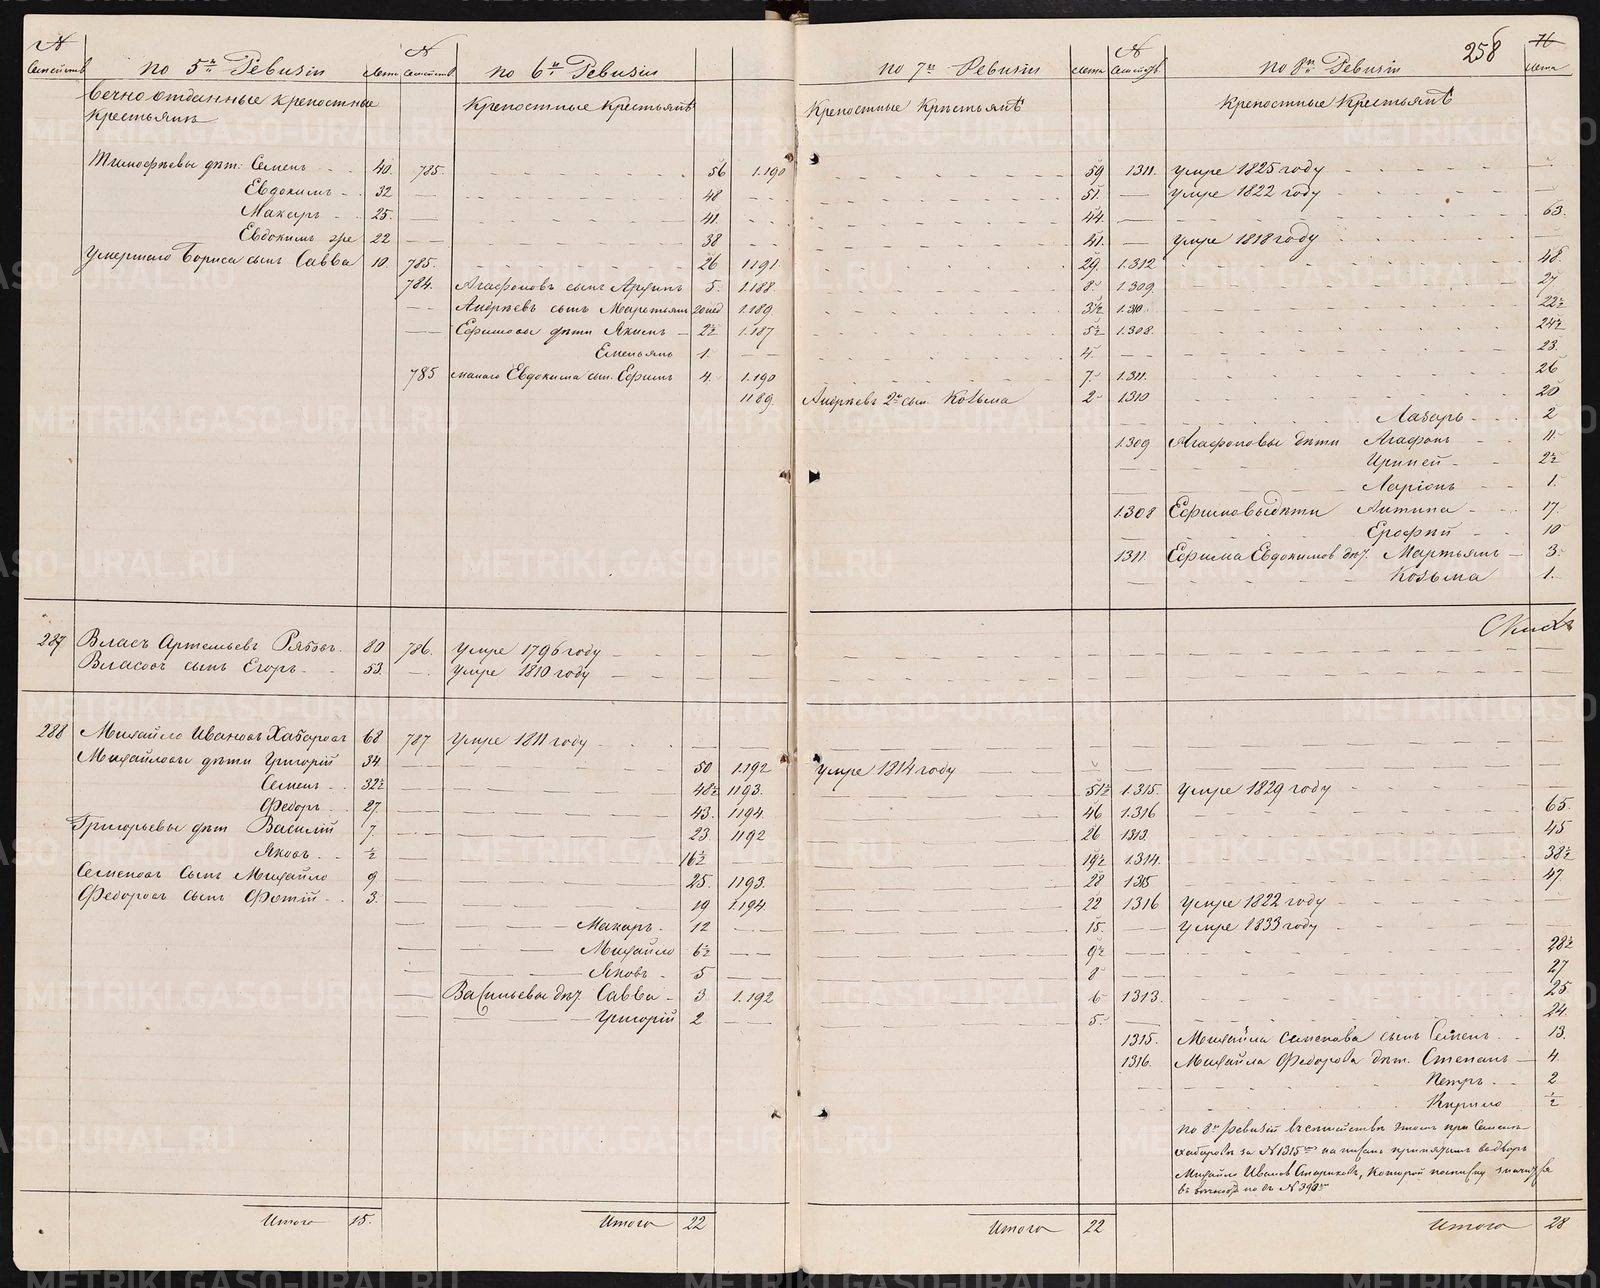 № семействъ по 5й Ревизіи лета № семействъ по 6й Ревизіи по 7й Ревизіи лета № семействъ по 8й Ревизіи 258 76 лета
вечно отданные крепостные крестьянѣ Крепостные Крестьянѣ Крепостные Крестьянѣ Крепостные Крестьянѣ
Тимофеевы дѣт: Семенъ 40. 785. 56 1.190 59 1311. умре 1825 году
Евдокимъ 32 48 51. умре 1822 году
Макаръ 25. 41. 44. 63.
Евдокимъ 22 38 41. умре 1818 году
Умершаго Бориса сынъ Савва 10. 785. 26 1191. 29. 1.312 48.
784. Агафоновъ сынъ 5. 1.188 8 1.309 27
Андреевъ сынъ 1.189. 3½ 1.310. 22½
Ефимовы дѣти Якимъ 2½ 1.187 5½ 1.308. 24½
Емельянъ 1. 4. 23.
785 Евдокима сын. Ефимъ 4. 1.190 7. 1.311. 26
1189. Андреевъ 2й сын. Козьма 2 1310 20
Лазарь 2
1.309 Агафоновы дѣти Агафонъ 11.
2½
Ларіонъ 1.
1.308 Ефимовы дѣти Антипа 17.
Ерофѣй 10
1311. Ефима Евдокимов дѣт. Мартьянъ 3.
Козьма 1.
287 Власъ Артемьевъ 80 786. умре 1796 году
Власовъ сынъ Егоръ 53. умре 1810 году
288 Михайло Ивановъ Хабаровъ 68 787 умре 1811 году
Михайловы дѣти Григорій 34 50 1.192 умре 1814 году
Семенъ 32½ 48½ 1193. 51½ 1.315. умре 1829 году
Федоръ 27. 43. 1194. 46 1.316 65.
Григорьевы дѣт Василій 7. 23. 1192 26 1313. 45
Яковъ ½ 16½ 19½ 1.314. 38½
Семеновъ Сынъ Михайло 9. 25. 1193. 28 1315 47.
Федоровъ Сынъ Фотій 3. 19 1.194. 22 1316 умре 1822 году
Макаръ 12 15. умре 1833 году
Михайло 6½ 9½ 28½
Яковъ 5 8 27
Васильевы дѣт. Савва 3 1.192 6 1313. 25
Григорій 2 5. 24.
1315. Михайла Семенова сынъ Семенъ 13.
1316. Михайла Федорова дѣт. Степанъ 4.
Петръ 2
Кирило ½
по 8й ревизіи въ семействѣ при Семенѣ
Хабаровѣ за №1315
Михайло Иванов
Итого 15. Итого 22 Итого 22 Итого 28
METRIKI.GASO-URAL.RU